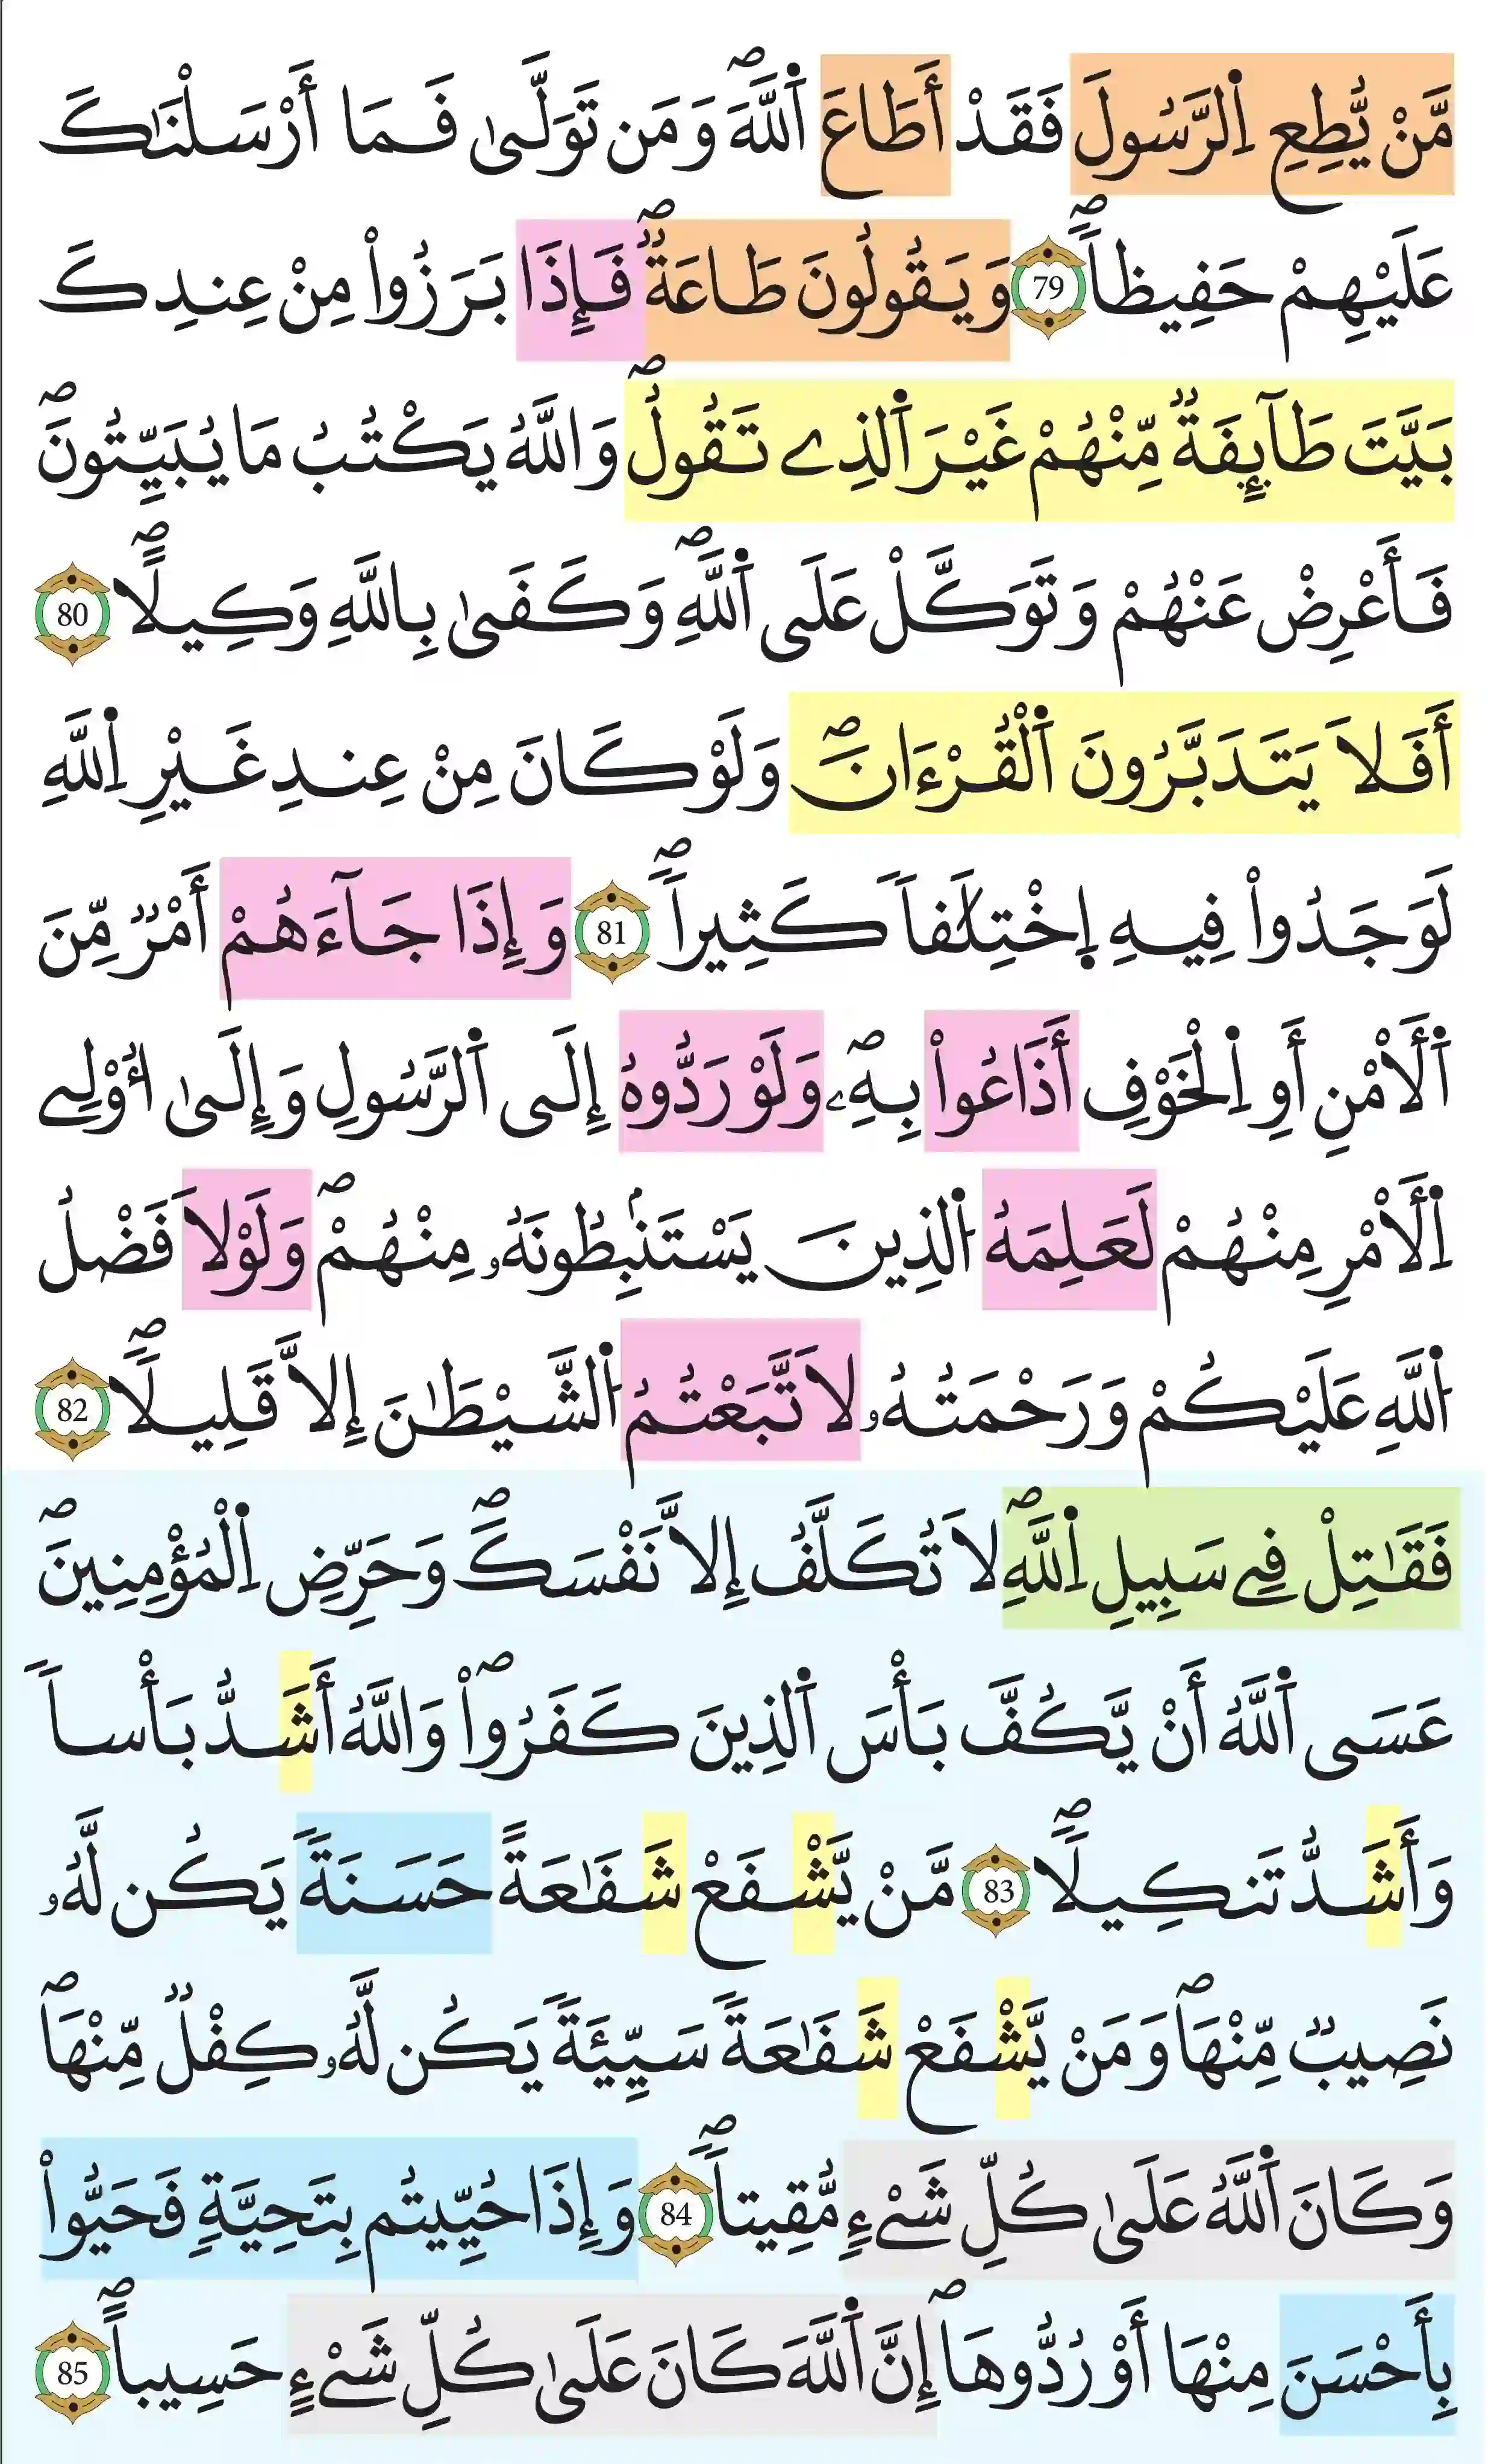 مَّنْ يُّطِعِ اِ۬لرَّسُولَ فَقَدْ أَطَاعَ اَ۬للَّهَۖ وَمَن تَوَلَّىٰ فَمَا أَرْسَلْنَٰكَ
عَلَيْهِمْ حَفِيظاٗۖ 79 وَيَقُولُونَ طَاعَةٞۖ فَإِذَا بَرَزُواْ مِنْ عِندِكَ
بَيَّتَ طَآئِفَةٞ مِّنْهُمْ غَيْرَ اَ۬لذِے تَقُولُۖ وَاللَّهُ يَكْتُبُ مَا يُبَيِّتُونَۖ
فَأَعْرِضْ عَنْهُمْ وَتَوَكَّلْ عَلَى اَ۬للَّهِۖ وَكَفَىٰ بِاللَّهِ وَكِيلًاۖ 80
أَفَلَا يَتَدَبَّرُونَ اَ۬لْقُرْءَانَۖ وَلَوْ كَانَ مِنْ عِندِ غَيْرِ اِ۬للَّهِ
لَوَجَدُواْ فِيهِ اِ۪خْتِلَٰفاٗ كَثِيراٗۖ 81 وَإِذَا جَآءَهُمْ أَمْرٞ مِّنَ
اَ۬لَأمْنِ أَوِ اِ۬لْخَوْفِ أَذَاعُواْ بِهِۦۖ وَلَوْ رَدُّوهُ إِلَى اَ۬لرَّسُولِ وَإِلَىٰ أُوْلِے
اِ۬لَأمْرِ مِنْهُمْ لَعَلِمَهُ اُ۬لذِينَ يَسْتَنۢبِطُونَهُۥ مِنْهُمْۖ وَلَوْلَا فَضْلُ
اُ۬للَّهِ عَلَيْكُمْ وَرَحْمَتُهُۥ لَا تَّبَعْتُمُ اُ۬لشَّيْطَٰنَ إِلَّا قَلِيلًاۖ 82
فَقَٰتِلْ فِے سَبِيلِ اِ۬للَّهِۖ لَا تُكَلَّفُ إِلَّا نَفْسَكَۖ وَحَرِّضِ اِ۬لْمُؤْمِنِينَۖ
عَسَى اَ۬للَّهُ أَنْ يَّكُفَّ بَأْسَ اَ۬لذِينَ كَفَرُواْۖ وَاللَّهُ أَشَدُّ بَأْساٗ
وَأَشَدُّ تَنكِيلًاۖ 83 مَّنْ يَّشْفَعْ شَفَٰعَةً حَسَنَةٗ يَكُن لَّهُۥ
نَصِيبٞ مِّنْهَاۖ وَمَنْ يَّشْفَعْ شَفَٰعَةٗ سَيِّئَةٗ يَكُن لَّهُۥ كِفْلٞ مِّنْهَاۖ
وَكَانَ اَ۬للَّهُ عَلَىٰ كُلِّ شَےْءٖ مُّقِيتاٗۖ 84 وَإِذَا حُيِّيتُم بِتَحِيَّةٖ فَحَيُّواْ
بِأَحْسَنَ مِنْهَا أَوْ رُدُّوهَاۖ إِنَّ اَ۬للَّهَ كَانَ عَلَىٰ كُلِّ شَےْءٍ حَسِيباًۖ 85